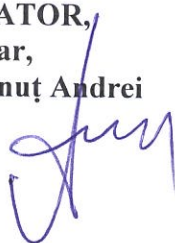 ATOR,
ar,
nuț Andrei